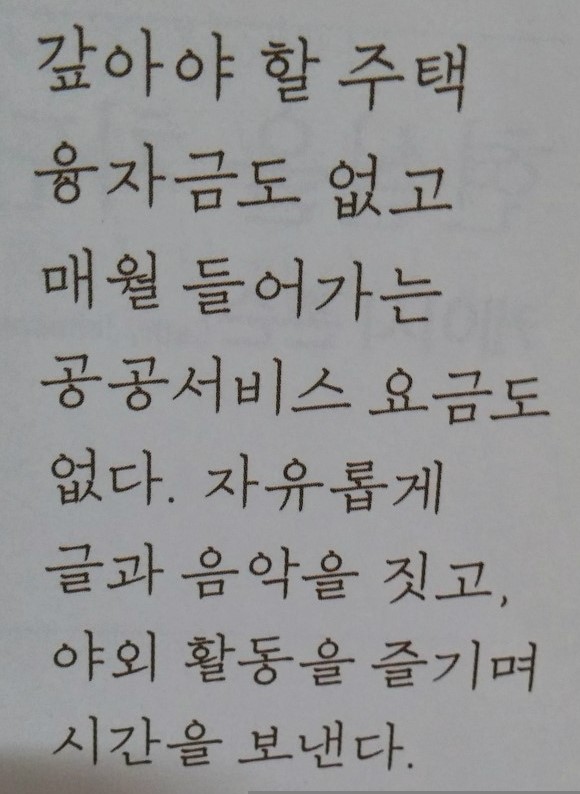 갚아야 할 주택
융자금도 없고
매월 들어가는
공공서비스 요금도
없다. 자유롭게
글과 음악을 짓고,
야외 활동을 즐기며
시간을 보낸다.